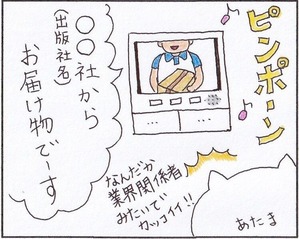 ピンポーン
○○社から
(出版社名)
お届け物でーす
なんだか
業界関係者
みたいで
カッコイイ!!
あたま